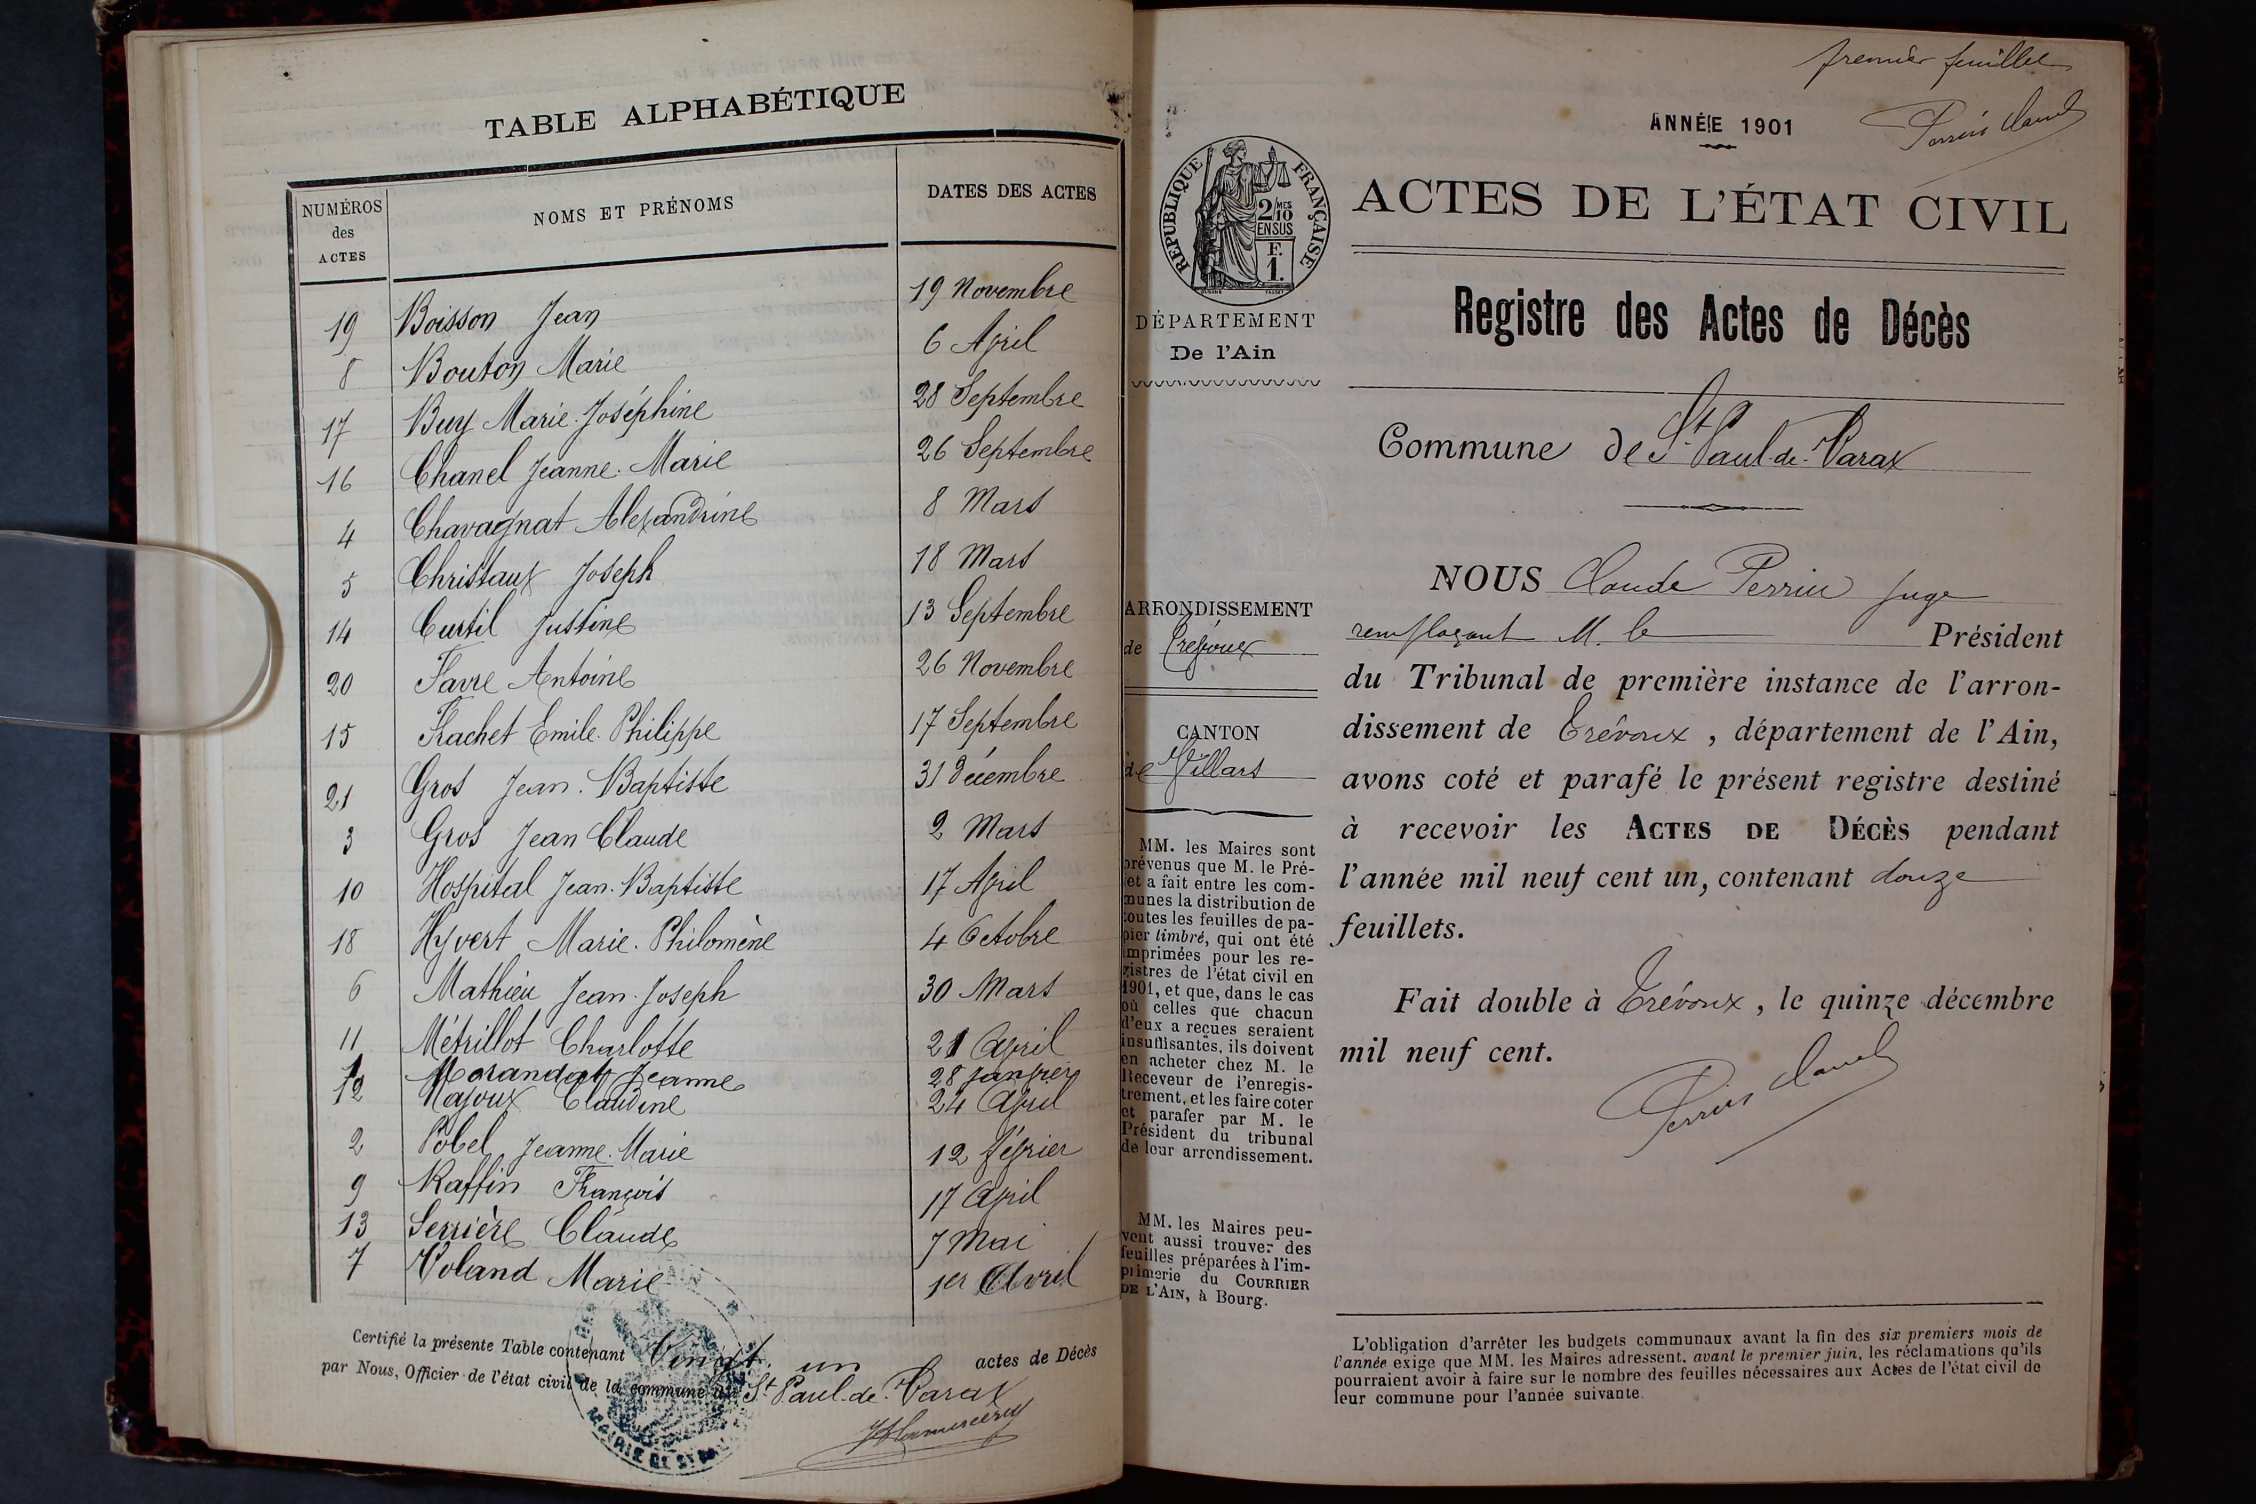 TABLE ALPHABÉTIQUE
NUMÉROS des ACTES NOMS ET PRÉNOMS DATES DES ACTES
19 Boisson Jean 19 Novembre
8 Bouton Marie 6 Avril
17 Buy Marie-Joséphine 28 Septembre
16 Chanel Jeanne-Marie 26 Septembre
4 Chavagnat Alexandrine 8 Mars
5 Christaux Joseph 18 Mars
14 Curtil Justine 13 Septembre
20 Favre Antoine 26 Novembre
15 Frachet Emile-Philippe 17 Septembre
21 Gros Jean-Baptiste 31 Décembre
3 Gros Jean Claude 2 Mars
10 Hospital Jean-Baptiste 17 Avril
18 Hyvert Marie-Philomène 4 Octobre
6 Mathieu Jean-Joseph 30 Mars
11 Métrillot Charlotte 21 Avril
1 Morandat Jeanne 28 Janvier
12 Nayoux Claudine 24 Avril
2 Pobel Jeanne-Marie 12 Février
9 Raffin François 17 Avril
13 Serrière Claude 7 Mai
7 Voland Marie 1er Avril
Certifié la présente Table contenant Vingt-un actes de Décès
par Nous, Officier de l'état civil de la commune de St Paul-de-Varax
MAIRIE DE ST PAUL
premier feuillet
Perrin Claude
ANNÉE 1901
RÉPUBLIQUE FRANÇAISE
2/10 MES
EN SUS
F.
1.
ACTES DE L'ÉTAT CIVIL
Registre des Actes de Décès
DÉPARTEMENT
De l'Ain
Commune de St Paul-de-Varax
ARRONDISSEMENT
de Trévoux
CANTON
de Villars
MM. les Maires sont
prévenus que M. le Pré-
fet a fait entre les com-
munes la distribution de
toutes les feuilles de pa-
pier timbré, qui ont été
imprimées pour les re-
gistres de l'état civil en
1901, et que, dans le cas
où celles que chacun
d'eux a reçues seraient
insuffisantes, ils doivent
en acheter chez M. le
Receveur de l'enregis-
trement, et les faire coter
et parafer par M. le
Président du tribunal
de leur arrondissement.
MM. les Maires peu-
vent aussi trouver des
feuilles préparées à l'im-
primerie du COURRIER
DE L'AIN, à Bourg.
NOUS Claude Perrin Juge
remplaçant M. le Président
du Tribunal de première instance de l'arron-
dissement de Trévoux, département de l'Ain,
avons coté et parafé le présent registre destiné
à recevoir les ACTES DE DÉCÈS pendant
l'année mil neuf cent un, contenant douze
feuillets.
Fait double à Trévoux, le quinze décembre
mil neuf cent.
Perrin Claude
L'obligation d'arrêter les budgets communaux avant la fin des six premiers mois de
l'année exige que MM. les Maires adressent, avant le premier juin, les réclamations qu'ils
pourraient avoir à faire sur le nombre des feuilles nécessaires aux Actes de l'état civil de
leur commune pour l'année suivante.